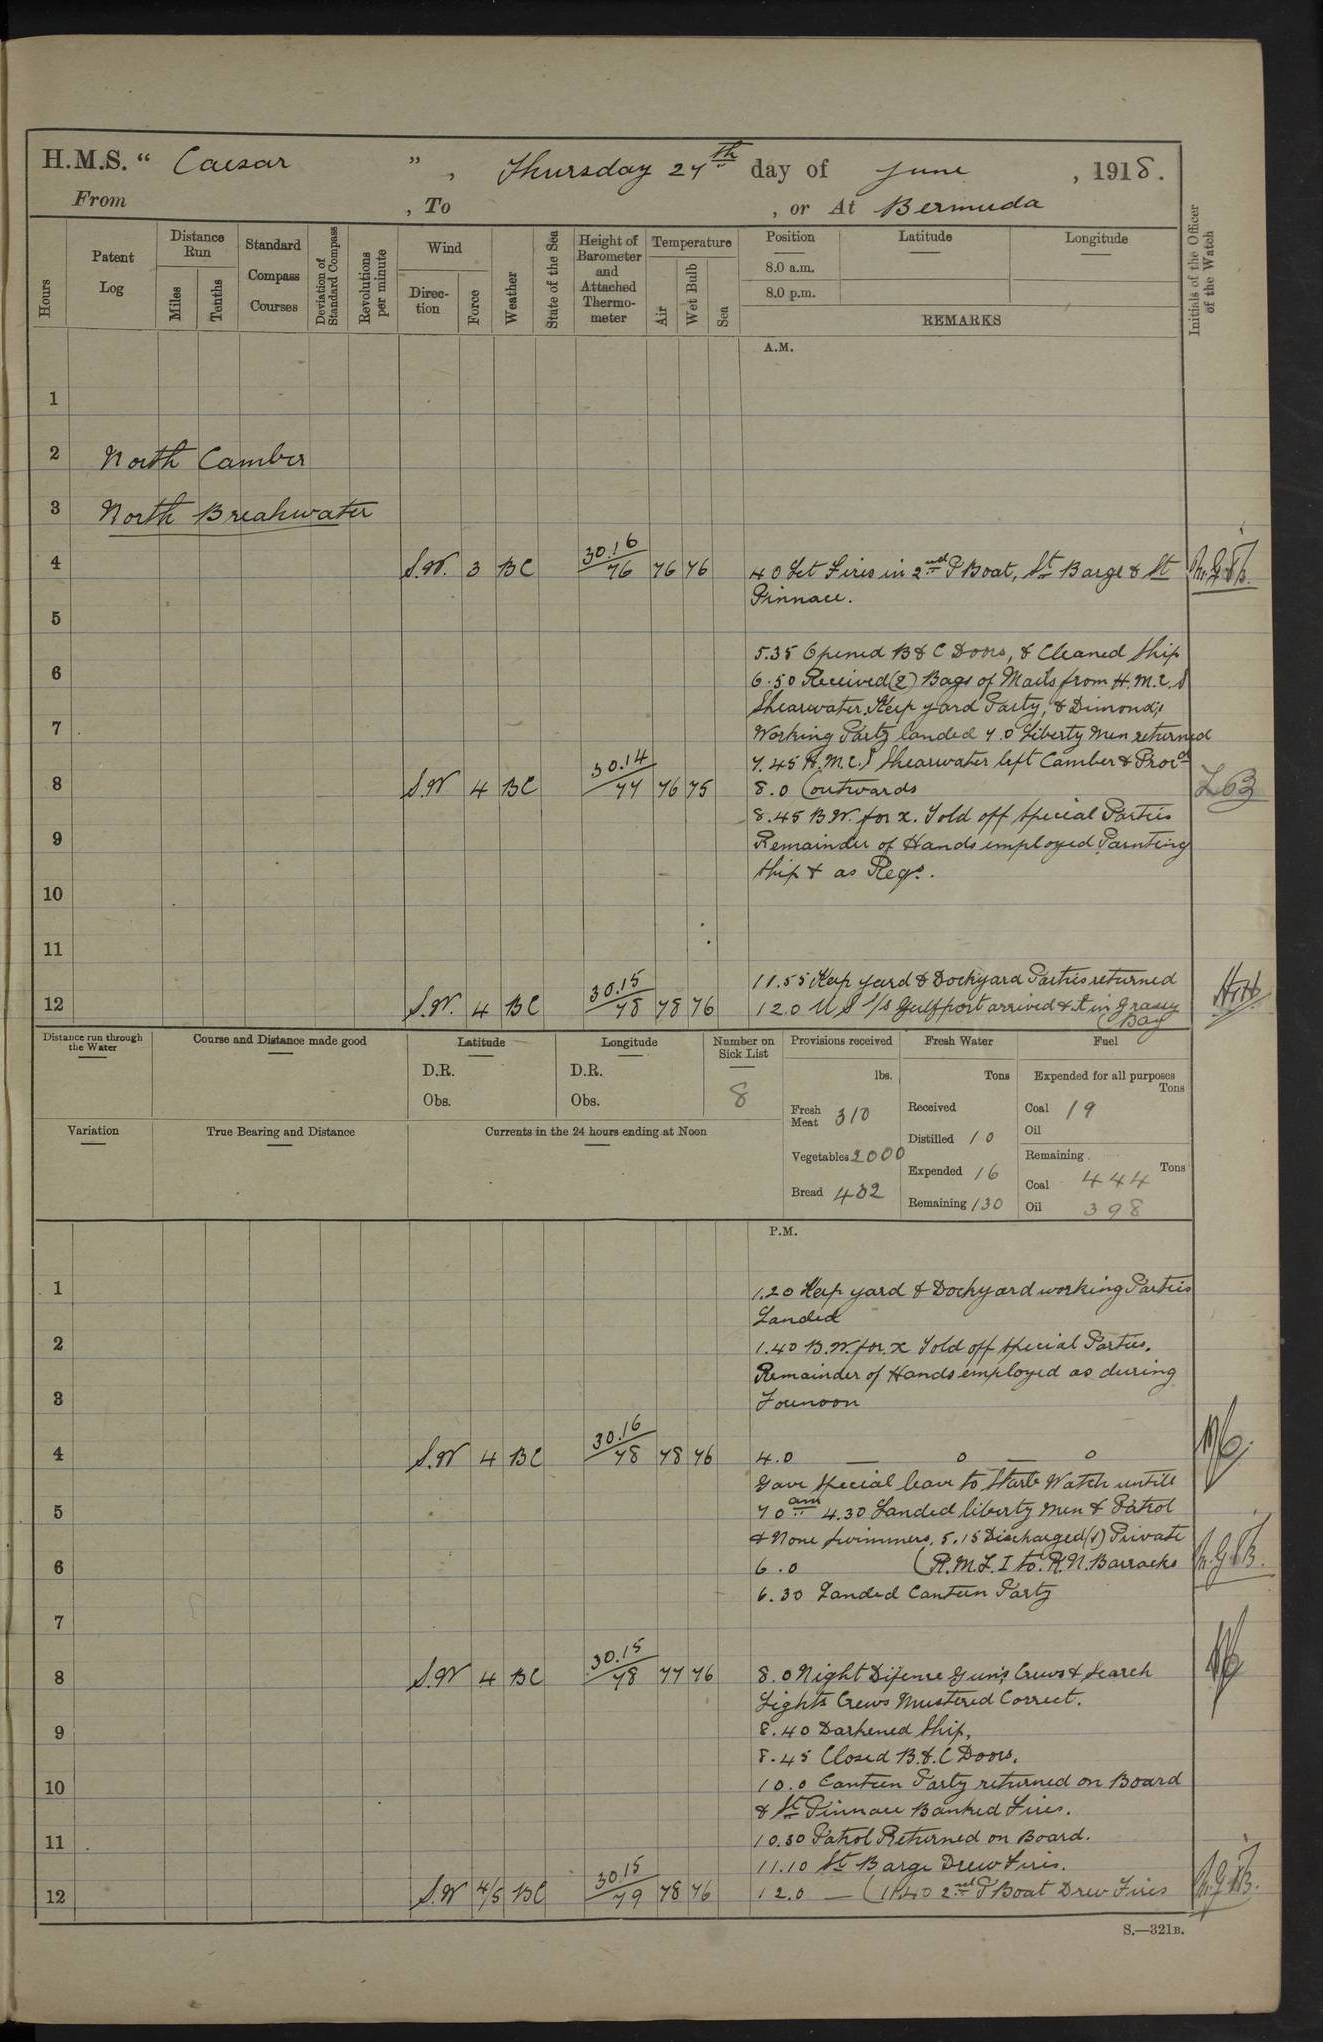 H.M.S. “ Caesar ” , Thursday 27th day of June , 1918.
From , To , or At Bermuda
Hours
Patent Log
Distance Run
Miles
Tenths
Standard Compass Courses
Deviation of Standard Compass
Revolutions per minute
Wind
Direction
Force
Weather
State of the Sea
Height of Barometer and Attached Thermometer
Temperature
Air
Wet Bulb
Sea
Position Latitude Longitude
8.0 a.m.
8.0 p.m.
REMARKS
Initials of the Officer of the Watch
A.M.
1
2 North Camber
3 North Breakwater
4 S.W. 3 BC 30.16/76 76 76 4 0 Let Fires in 2nd P Boat, St Barge & St
Pinnace.
5
5.35 Opened B & C Doors, & Cleaned Ship
6 6.50 Received (2) Bags of Mails from H.M.C.S
Shearwater, Keep yard Party, & Dimond's
7 Working Party landed 7.0 Liberty Men returned
7.45 H.M.C.S Shearwater left Camber & Procd
8 S.W 4 BC 30.14/77 76 75 8.0 (outwards
8.45 B.W. for x. Told off Special Parties
9 Remainder of Hands employed Painting
Ship & as Reqs.
10
11
11.55 Keep yard & Dockyard Parties returned
12 S.W. 4 BC 30.15/78 78 76 12.0 U S S/s Gulfport arrived & in Grassy
(Bay
Distance run through the Water
Course and Distance made good
Latitude
D.R.
Obs.
Longitude
D.R.
Obs.
Number on Sick List
8
Provisions received
lbs.
Fresh Meat 310
Vegetables 2000
Bread 402
Fresh Water
Tons
Received
Distilled 10
Expended 16
Remaining 130
Fuel
Expended for all purposes
Tons
Coal 19
Oil
Remaining
Tons
Coal 444
Oil 398
Variation
True Bearing and Distance
Currents in the 24 hours ending at Noon
P.M.
1 1.20 Keep yard & Dockyard working Parties
Landed
2 1.40 B.W. for x Told off Special Parties.
Remainder of Hands employed as during
3 Forenoon
4 S.W 4 BC 30.16/78 78 76 4.0 — o — o
Gave Special leave to Starb Watch untill
5 7 0 am 4.30 Landed liberty men & Patrol
& None Swimmers. 5.15 Discharged (1) Private
6 6.0 (R.M.L.I to R.N. Barracks
6.30 Landed Canteen Party
7
8 S.W 4 BC 30.15/78 77 76 8.0 Night Difence Gun's Crews & Search
Lights Crews Mustered Correct.
9 8.40 Darkened Ship,
8.45 Closed B.&.C Doors.
10 10.0 Canteen Party returned on Board
& St Pinnace Banked Fires.
11 10.30 Patrol Returned on Board.
11.10 St Barge Drew Fires.
12 S.W 4/5 BC 30.15/79 78 76 12.0 — (11.40 2nd P Boat Drew Fires
S.—321B.